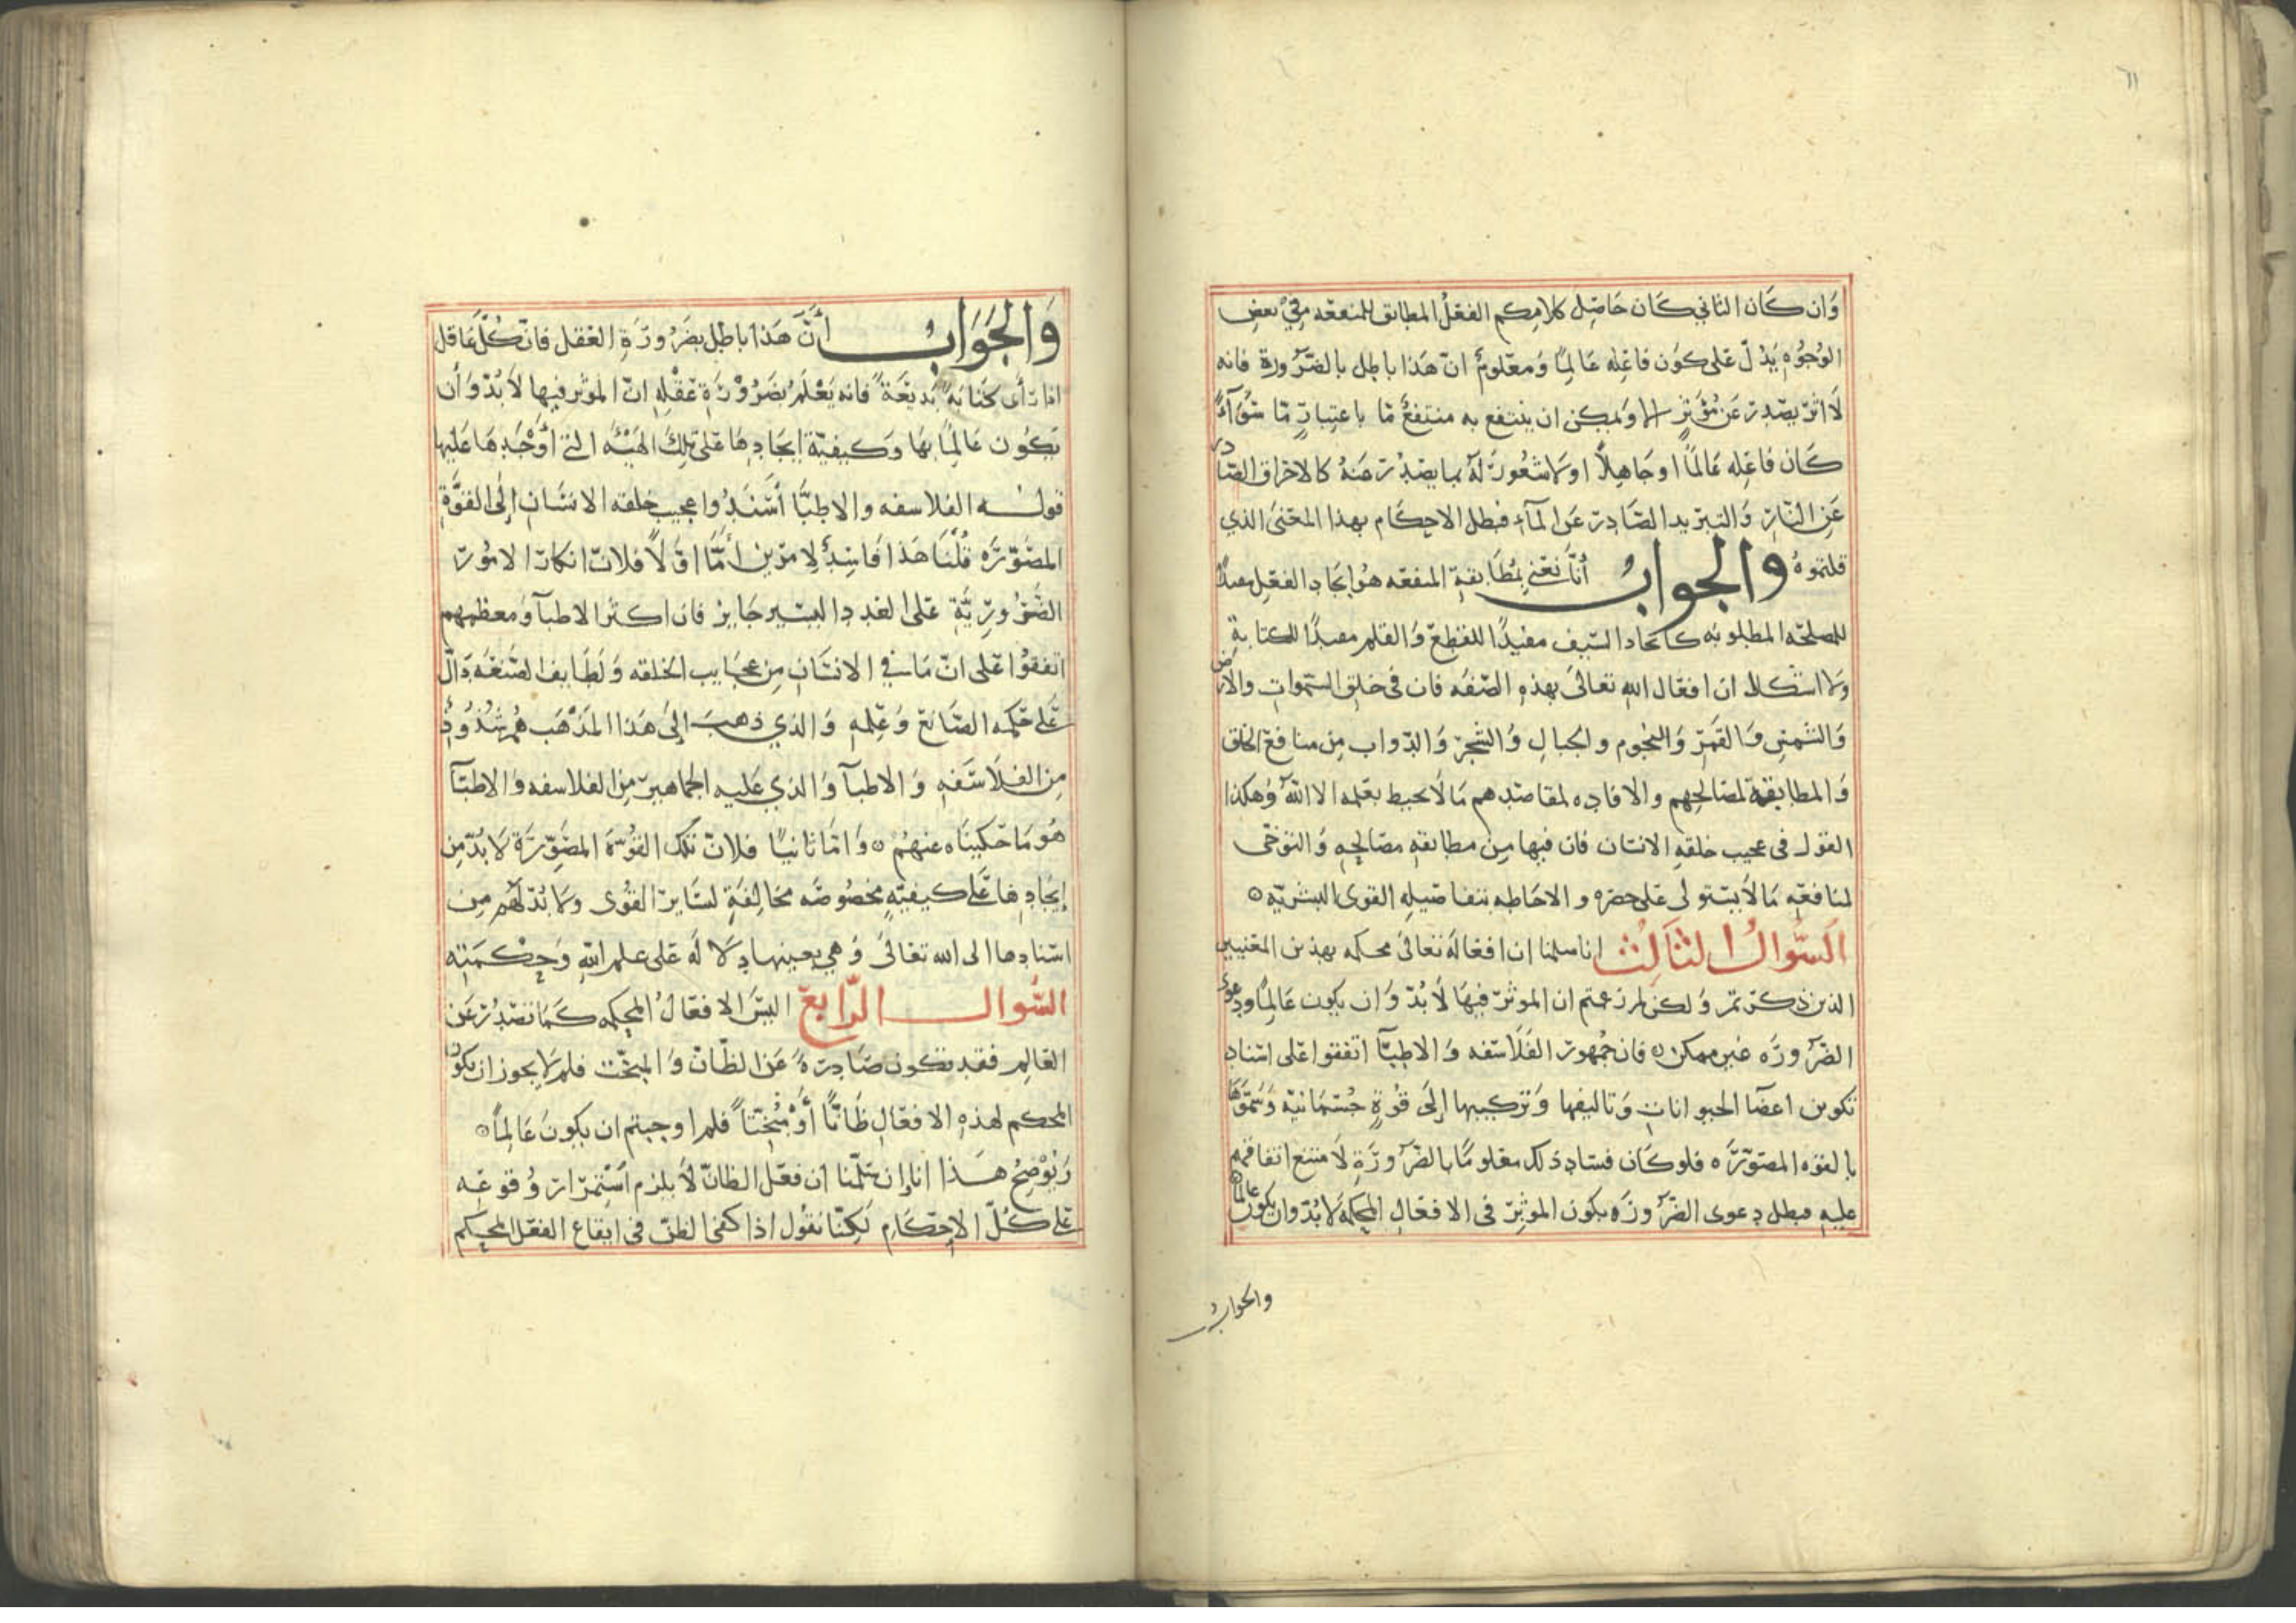 ١١
وَان كَان الثاني كَان حَاصِل كلامكم الفعْلُ المطابق للمنفعه مِنْ بعض
الوُجُوهِ يَدُلّ عَلى كوْن فاعِله عَالمًا وَمعلومٌ انّ هَذا باطِل بالضّرورة فانه
لَا اثرَ يصْدر عَن مُؤثِّرٍ الا ويمكن ان ينتفع به منتفعٌ مّا باعتبارٍ مّا سَوآءٌ
كَان فاعِله عَالمًا اوجَاهِلاً اولا شعُورَ لهُ بما يصْدُر عَنهُ كالاحراق الصّادر
عَنِ النّار وَالتبريد الصّادِر عَن المآء فبطل الاحكَام بهذا المعْنىَ الذي
قلتموهُ والجوابُ أنّا نعْني بمُطَابقةِ المنفعه هوَ ايجَاد الفعْلِ مفيدًا
للمصلحَه المطلوبَه كايحَاد السّيف مفيدًا للقطعْ وَالقلم مفيدًا للكتابةِ
ولا اشكال ان افعَال اللهِ تعالىَ بهذهِ الصّفَه فان في خلق السّموات والارض
وَالشمسِ وَالقمَر وَالنجوم والجبالِ وَالشجر وَالدّواب مِن منافع الخلق
وَالمطابقة لمصَالحِهم والافاده لمقاصدهم مَا لَا يحيط بعلمه الا اللهُ وَهكذا
القول في عجيب خلقهِ الانسَان فان فيها مِن مطابقهِ مصَالحِهِ وَالتوخّى
لمنافعِه مَا لَا يستولى عَلى حصْره والاحَاطه بتفاصيله القوى البشريّه ۝
السُّوالُ الثالِثُ انا سلمنا ان افعالهُ تعَالىَ محكمه بهذين المعْنيين
الذين ذكرتم وَلكن لم زعمتم ان الموثرَ فيهَا لَا بُدّ وَان يكون عَالمًا ودعوى
الضّرورَه غير ممكنه فان جُمهور الفَلَاسَفه وَالاطِبّآ اتفقوا عَلى اسناد
تكوين اعضَآ الحيوانات وَتاليفها وَتركيبها إلىَ قُوةٍ جُسْمَانيّه وَسمّوهَا
بالقوه المصوّرَه فلو كَان فسَاد ذلك معْلومًا بالضّرورَةِ لَامتنع اتفاقهم
عليهِ فبطل دعوى الضّرورَه بكون الموثِرّ في الافعَالِ المحكمَه لَا بُدّ وان يكون عالمًا
والجوابُ
وَالجَوَابُ أنَّ هَذا باطِل بضَرُورَةِ العَقل فانّ كُلَّ عَاقل
اذا رَأى كتَابَةً بَديعَةً فانه يَعْلَمُ بضَرُوْرَةِ عَقْلِهِ انّ الموثر فيها لَا بُدّ وَأن
يكوُن عَالمًا بهَا وَكيفيّة إيجَادِهَا عَلى تِلكَ الهَيْئَه التي أوْجَدهَا عَليها
قولـــه الفلاسفه والاطِبَّا أسْنَدُوا عجيب خلقه الانسَان إلىَ القُوَّةِ
المصَوّرَه قُلْنَا هَذا فَاسِدٌ لِامرَين أمَّا اوّلاً فلانّ انكارَ الامُور
الضّرُورِيَّةِ عَلى العَدد اليسير جَايز فان اكثر الاطبآ وَمعظمهم
اتفقُوا عَلى انّ مَا في الانسَان مِن عجَايب الخلقه وَلَطَايف الصّنعَه دَالّ
عَلى حكمه الصّانع وَعِلمهِ وَالذي ذهبَ إلىَ هَذا المَذْهَب همُ شذُوذٌ
مِن الفلَاسَفهِ وَالاطبآ وَالذي عَليه الجماهير مِن الفلاسفه وَالاطبّآ
هُومَا حَكينَاه عنهُم ۝ وَامّا ثانيًا فلانّ تلك القُوّة المصَوِّرَة لَا بُدّ مِن
إيجَادِهَا عَلى كيفيّهٍ مخصُوصَه مخَالِفَةٍ لسَاير القُوى ولا بُدّ لهُم مِن
اسْنادها الى الله تعَالىَ وَهي بعينها دِلَالَه عَلى علم اللهِ وَحِكمَتِه
السُّوالـــ الرَّابع اليسَ الافعَالُ المحكمه كمَا تصْدُر عَن
العَالِم فقد تكون صَادِرَةً عَن الظّانّ وَالمبخّت فلم لا يجوز ان يكوُن
المحكم لهذهِ الافعَالِ ظَانًّا أوْ مُبْخّتاً فلم اوجبتم ان يكون عَالمًا ۝
وَيُوْضِحُ هـــذا انا إن سَلّمْنا أن فعْل الظانّ لَا يلزم اسْتِمْرَار وُقوعِه
عَلى كُلّ الاِحْكَامِ لكِنّا نقوُل اذا كفى الظنّ في ايقاع الفعْل المحكم